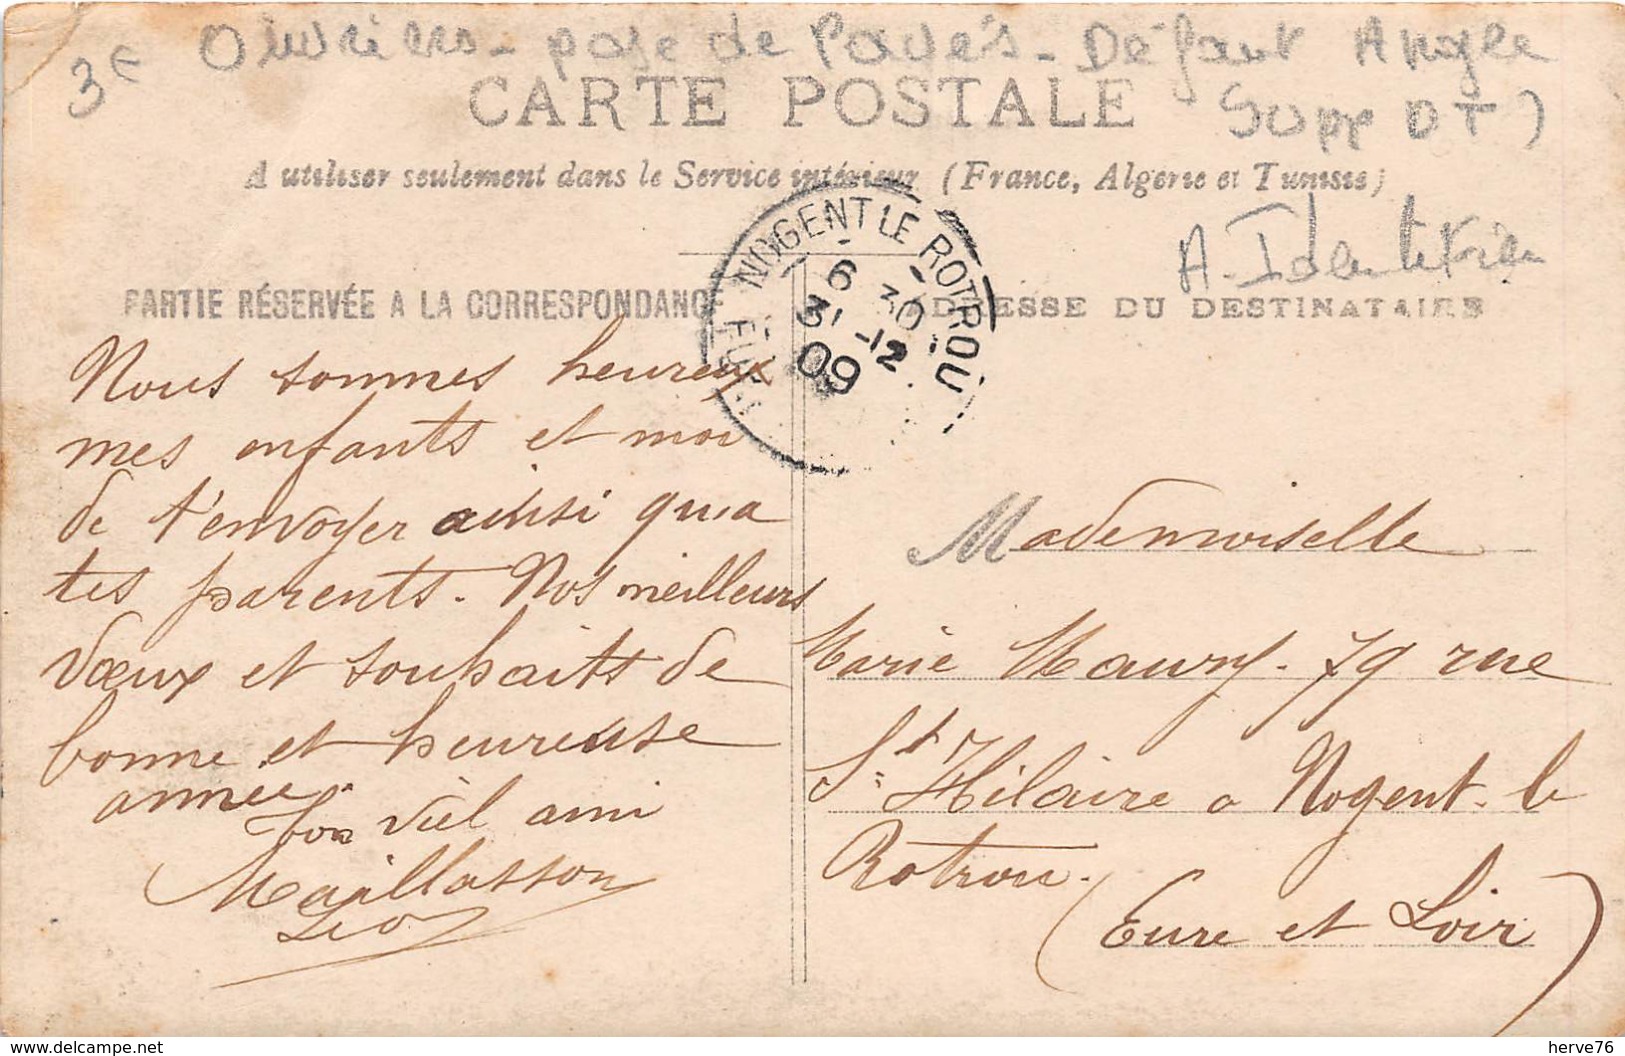 3€ Ouvriers - pose de Pavés - Défaut Angle
Supp DT)
CARTE POSTALE
A utiliser seulement dans le Service intérieur (France, Algérie et Tunisie)
A Identifier
NOGENT LE ROTROU
6 30
31 -12
09
PARTIE RÉSERVÉE A LA CORRESPONDANCE
ADRESSE DU DESTINATAIRE
Nous sommes heureux
mes enfants et moi
de t'envoyer ainsi qu'a
tes parents. Nos meilleurs
vœux et souhaits de
bonne et heureuse
année
Ton viel ami
Maillasson
Léo
Mademoiselle
Marie Maury. 79 rue
St Hilaire a Nogent-le
Rotrou.
(Eure et Loir)
delcampe.net
herve76